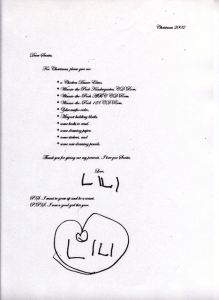 Christmas 2002
Dear Santa,
For Christmas, please give me
* a Chicken Dance Elmo,
* Winnie the Pooh Kindergarten CD Rom,
* Winnie the Pooh ABC CD Rom,
* Winnie the Pooh 123 CD Rom,
* Magnet building blocks,
* some books to read,
* some drawing paper,
* some stickers, and
* some new drawing pencils.
Thank you for giving me my presents. I love you Santa.
Love,
LILI
P.S. I want to grow up and be a
P.P.S. I was a good girl this year.
LILI